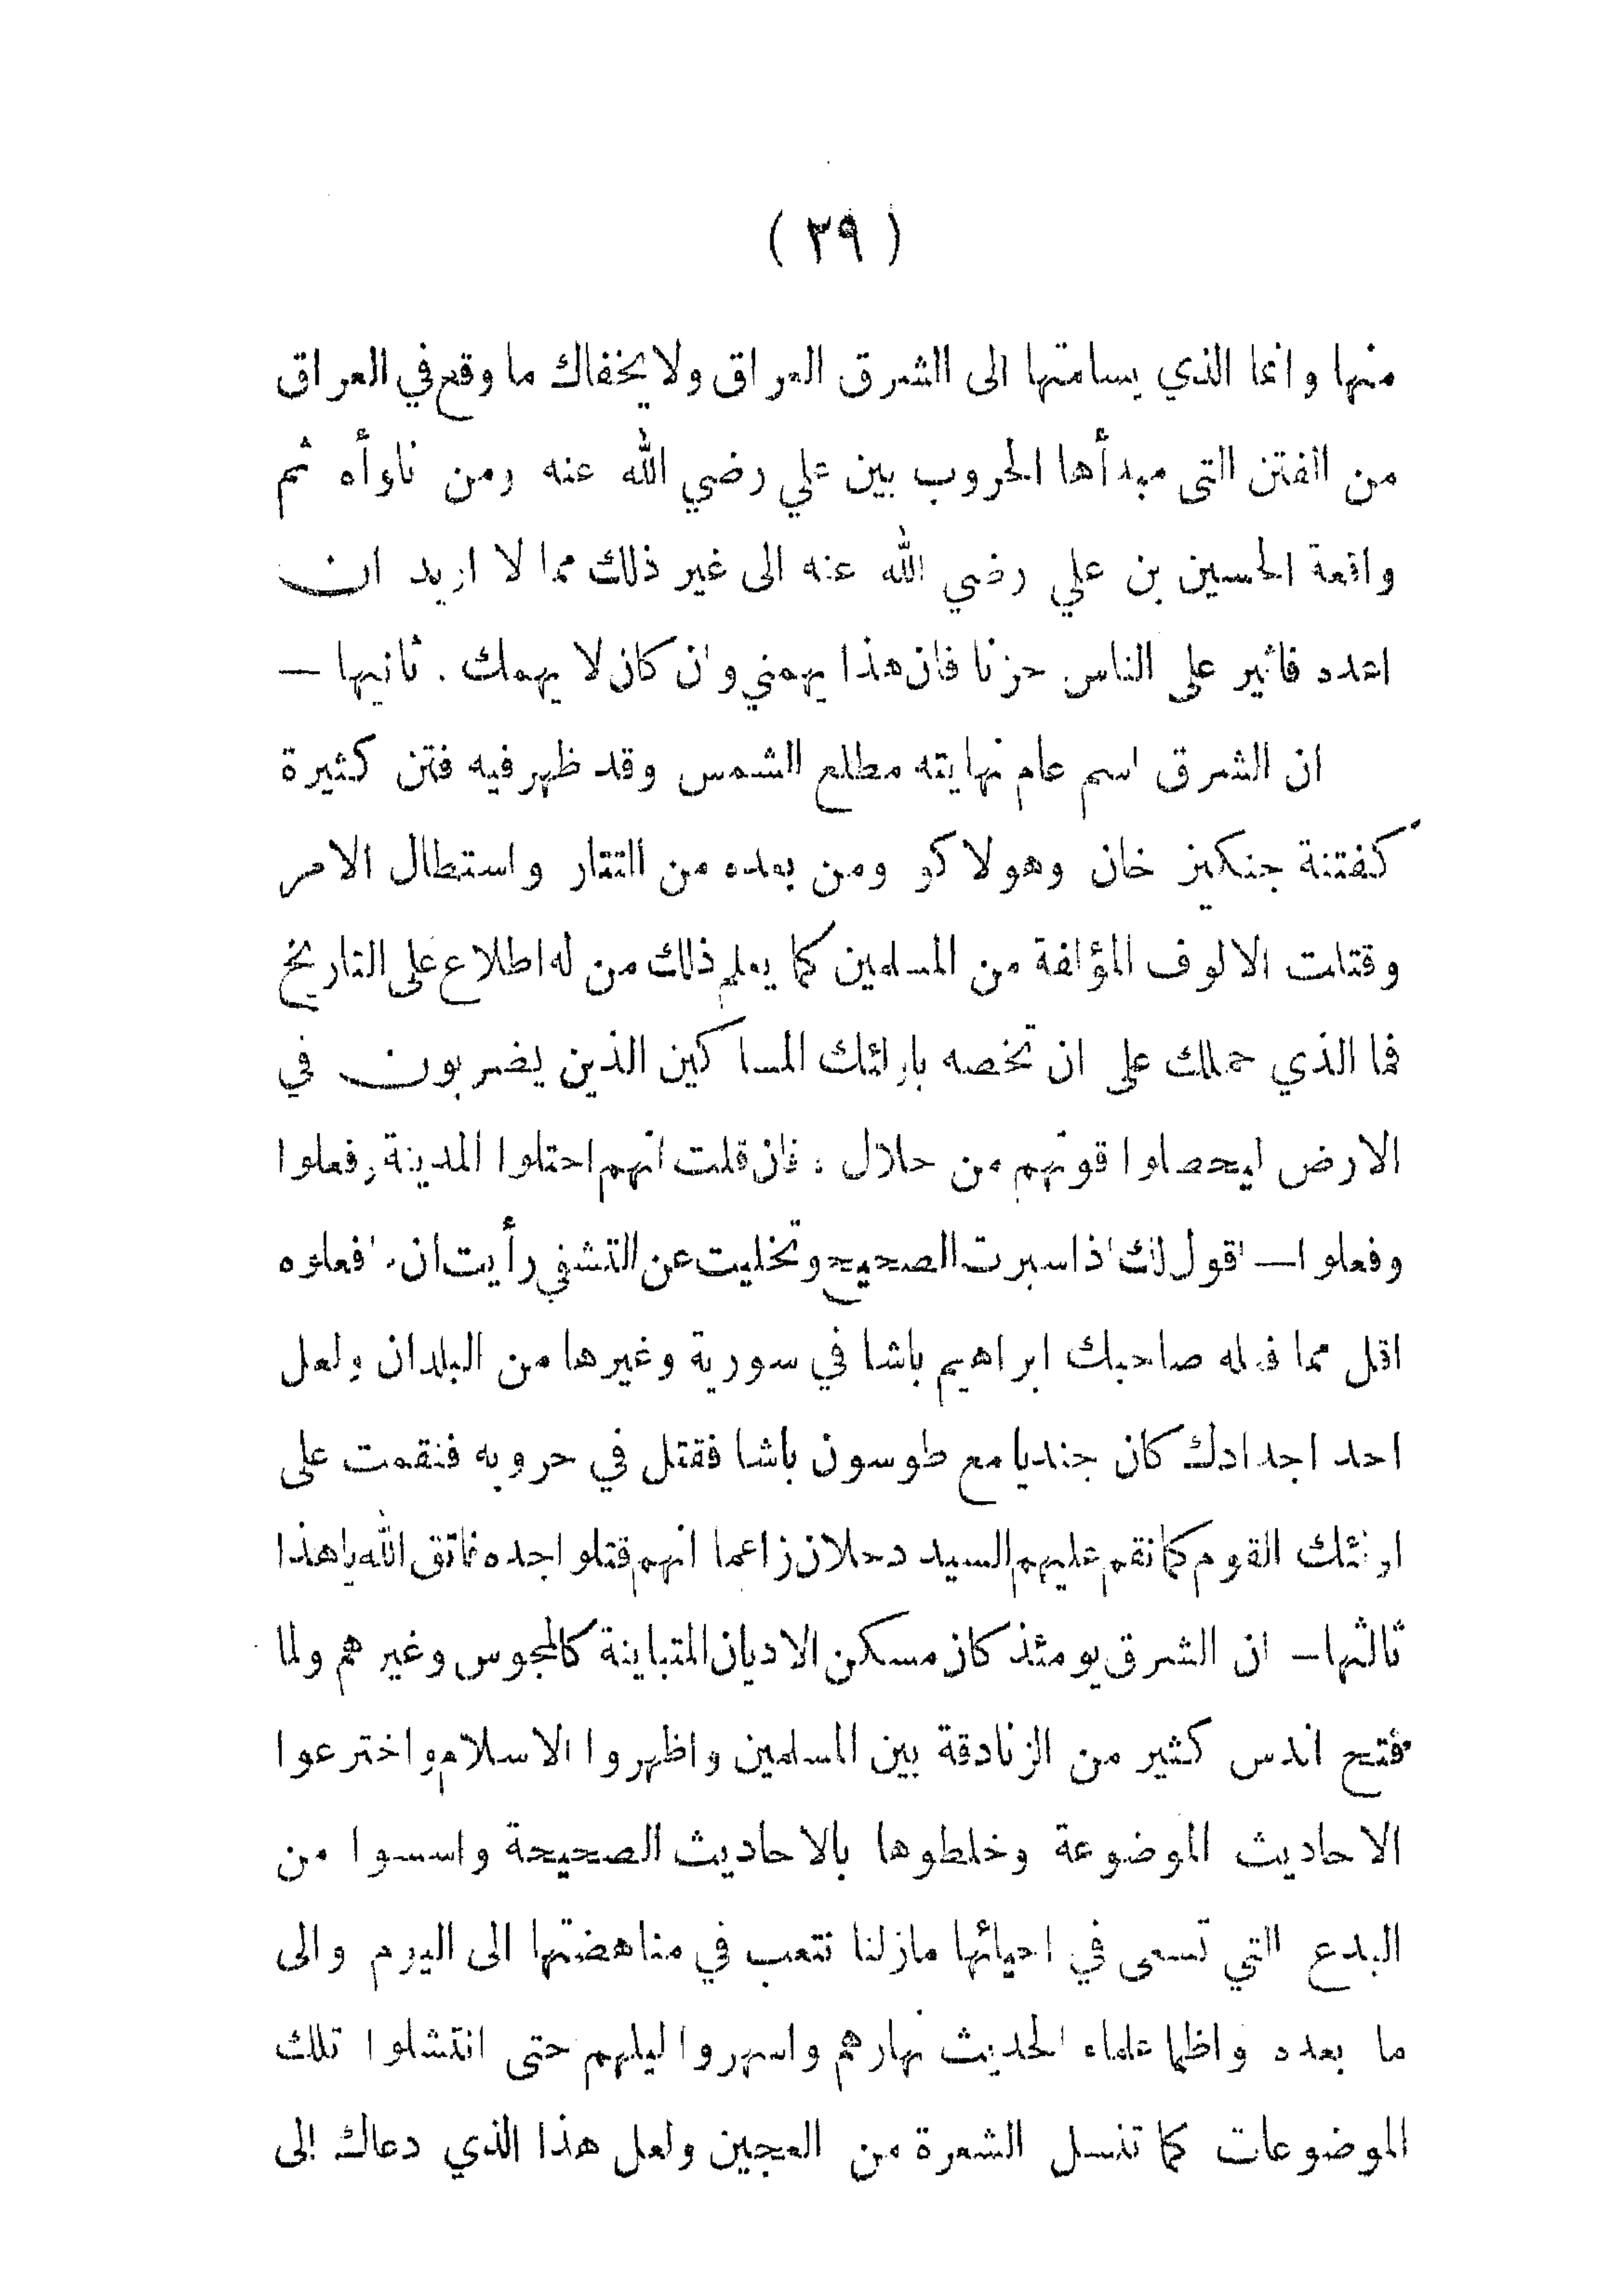 ( ٣٩ )
منها وانما الذي يسامتها الى الشرق العراق ولا يخفاك ما وقع في العراق
من الفتن التى مبدأها الحروب بين علي رضي الله عنه ومن ناوأه ثم
واقعة الحسين بن علي رضي الله عنه الى غير ذلك مما لا ازيد ان
اعدده فاثير على الناس حزنا فان هذا يهمني وان كان لا يهمك . ثانيها —
ان الشرق اسم عام نهايته مطلع الشمس وقد ظهر فيه فتن كثيرة
كفتنة جنكيز خان وهولاكو ومن بعده من التتار واستطال الامر
وقتلت الالوف المؤلفة من المسلمين كما يعلم ذلك من له اطلاع على التاريخ
فما الذي حملك على ان تخصه باولئك المساكين الذين يضربون في
الارض ليحصلوا قوتهم من حلال . فان قلت انهم احتلوا المدينة وفعلوا
وفعلوا — اقول لك اذا سبرت الصحيح وتخليت عن التشفي رأيت ان ما فعلوه
اقل مما فعله صاحبك ابراهيم باشا في سورية وغيرها من البلدان ولعل
احد اجدادك كان جنديا مع طوسون باشا فقتل في حروبه فنقمت على
اولئك القوم كما نقم عليهم السيد دحلان زاعما انهم قتلوا جده فاتق الله يا هذا
ثالثها — ان الشرق يومئذ كان مسكن الاديان المتباينة كالمجوس وغيرهم ولما
فتح اندس كثير من الزنادقة بين المسلمين واظهروا الاسلام واخترعوا
الاحاديث الموضوعة وخلطوها بالاحاديث الصحيحة واسسوا من
البدع التي تسعى في احيائها مازلنا نتعب في مناهضتها الى اليوم والى
ما بعده واظما علماء الحديث نهارهم واسهروا ليلهم حتى انتشلوا تلك
الموضوعات كما تنسل الشعرة من العجين ولعل هذا الذي دعاك الى